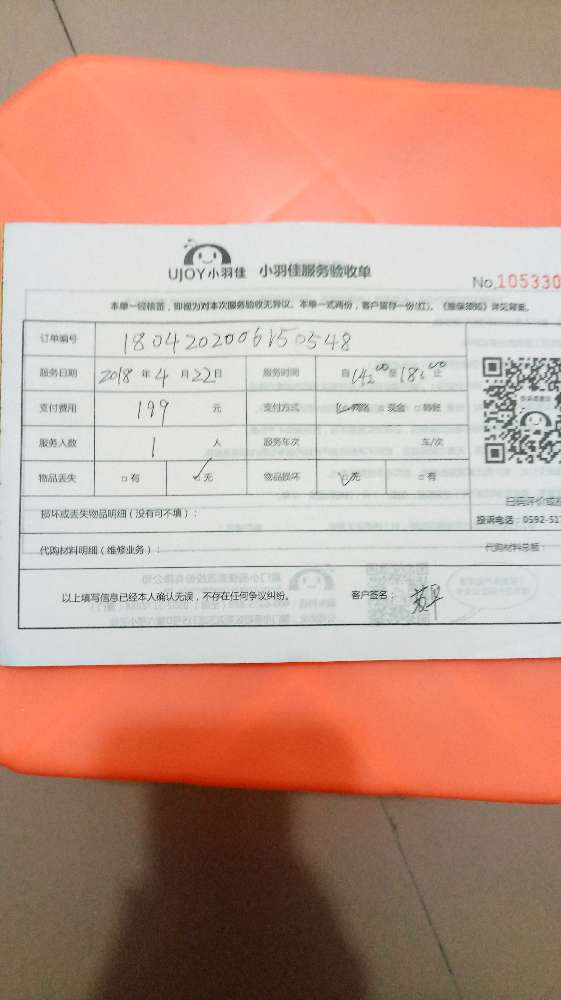 UJOY小羽佳 小羽佳服务验收单
No.105330
本单一经核签，即视为对本次服务验收无异议。本单一式两份，客户留存一份(红)。《维保须知》详见背面。
订单编号 18042020061 50548
服务日期 2018 年 4 月 22 日 服务时间 自 14:00 至 18:00 止
支付费用 199 元 支付方式 网络 □现金 □转账
服务人数 1 人 服务车次 车/次
物品丢失 □有 ✓无 物品损坏 ✓无 □有
损坏或丢失物品明细（没有可不填）：
扫码评价或
投诉电话：0592-51
代购材料明细（维修业务）： 代购材料总额：
以上填写信息已经本人确认无误，不存在任何争议纠纷。 客户签名：